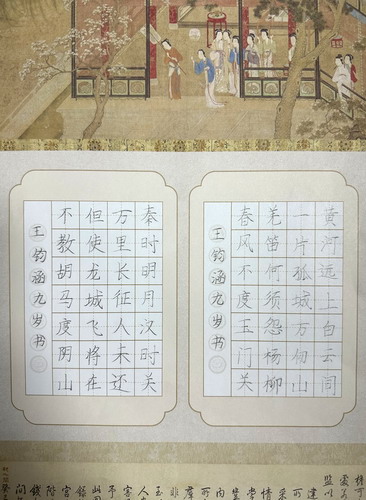 黄河远上白云间
一片孤城万仞山
羌笛何须怨杨柳
春风不度玉门关
王钧涵九岁书
秦时明月汉时关
万里长征人未还
但使龙城飞将在
不教胡马度阴山
王钧涵九岁书